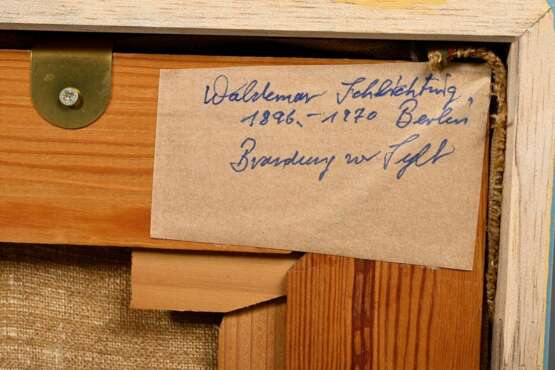 Waldemar Schlichting,
1896.-1970 Berlin
Brandung vor Sylt